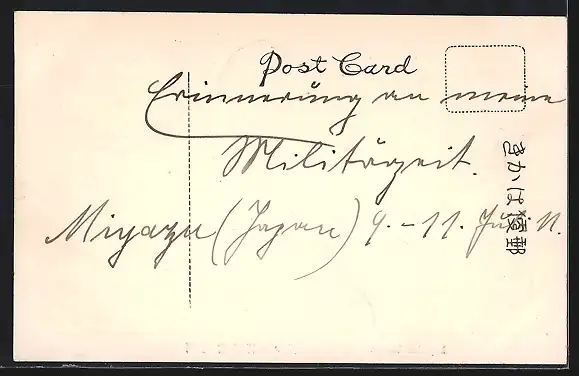 Post Card
Erinnerung an meine
Militärzeit.
Miyazu (Japan) 9.-11. 11.
きかは便郵